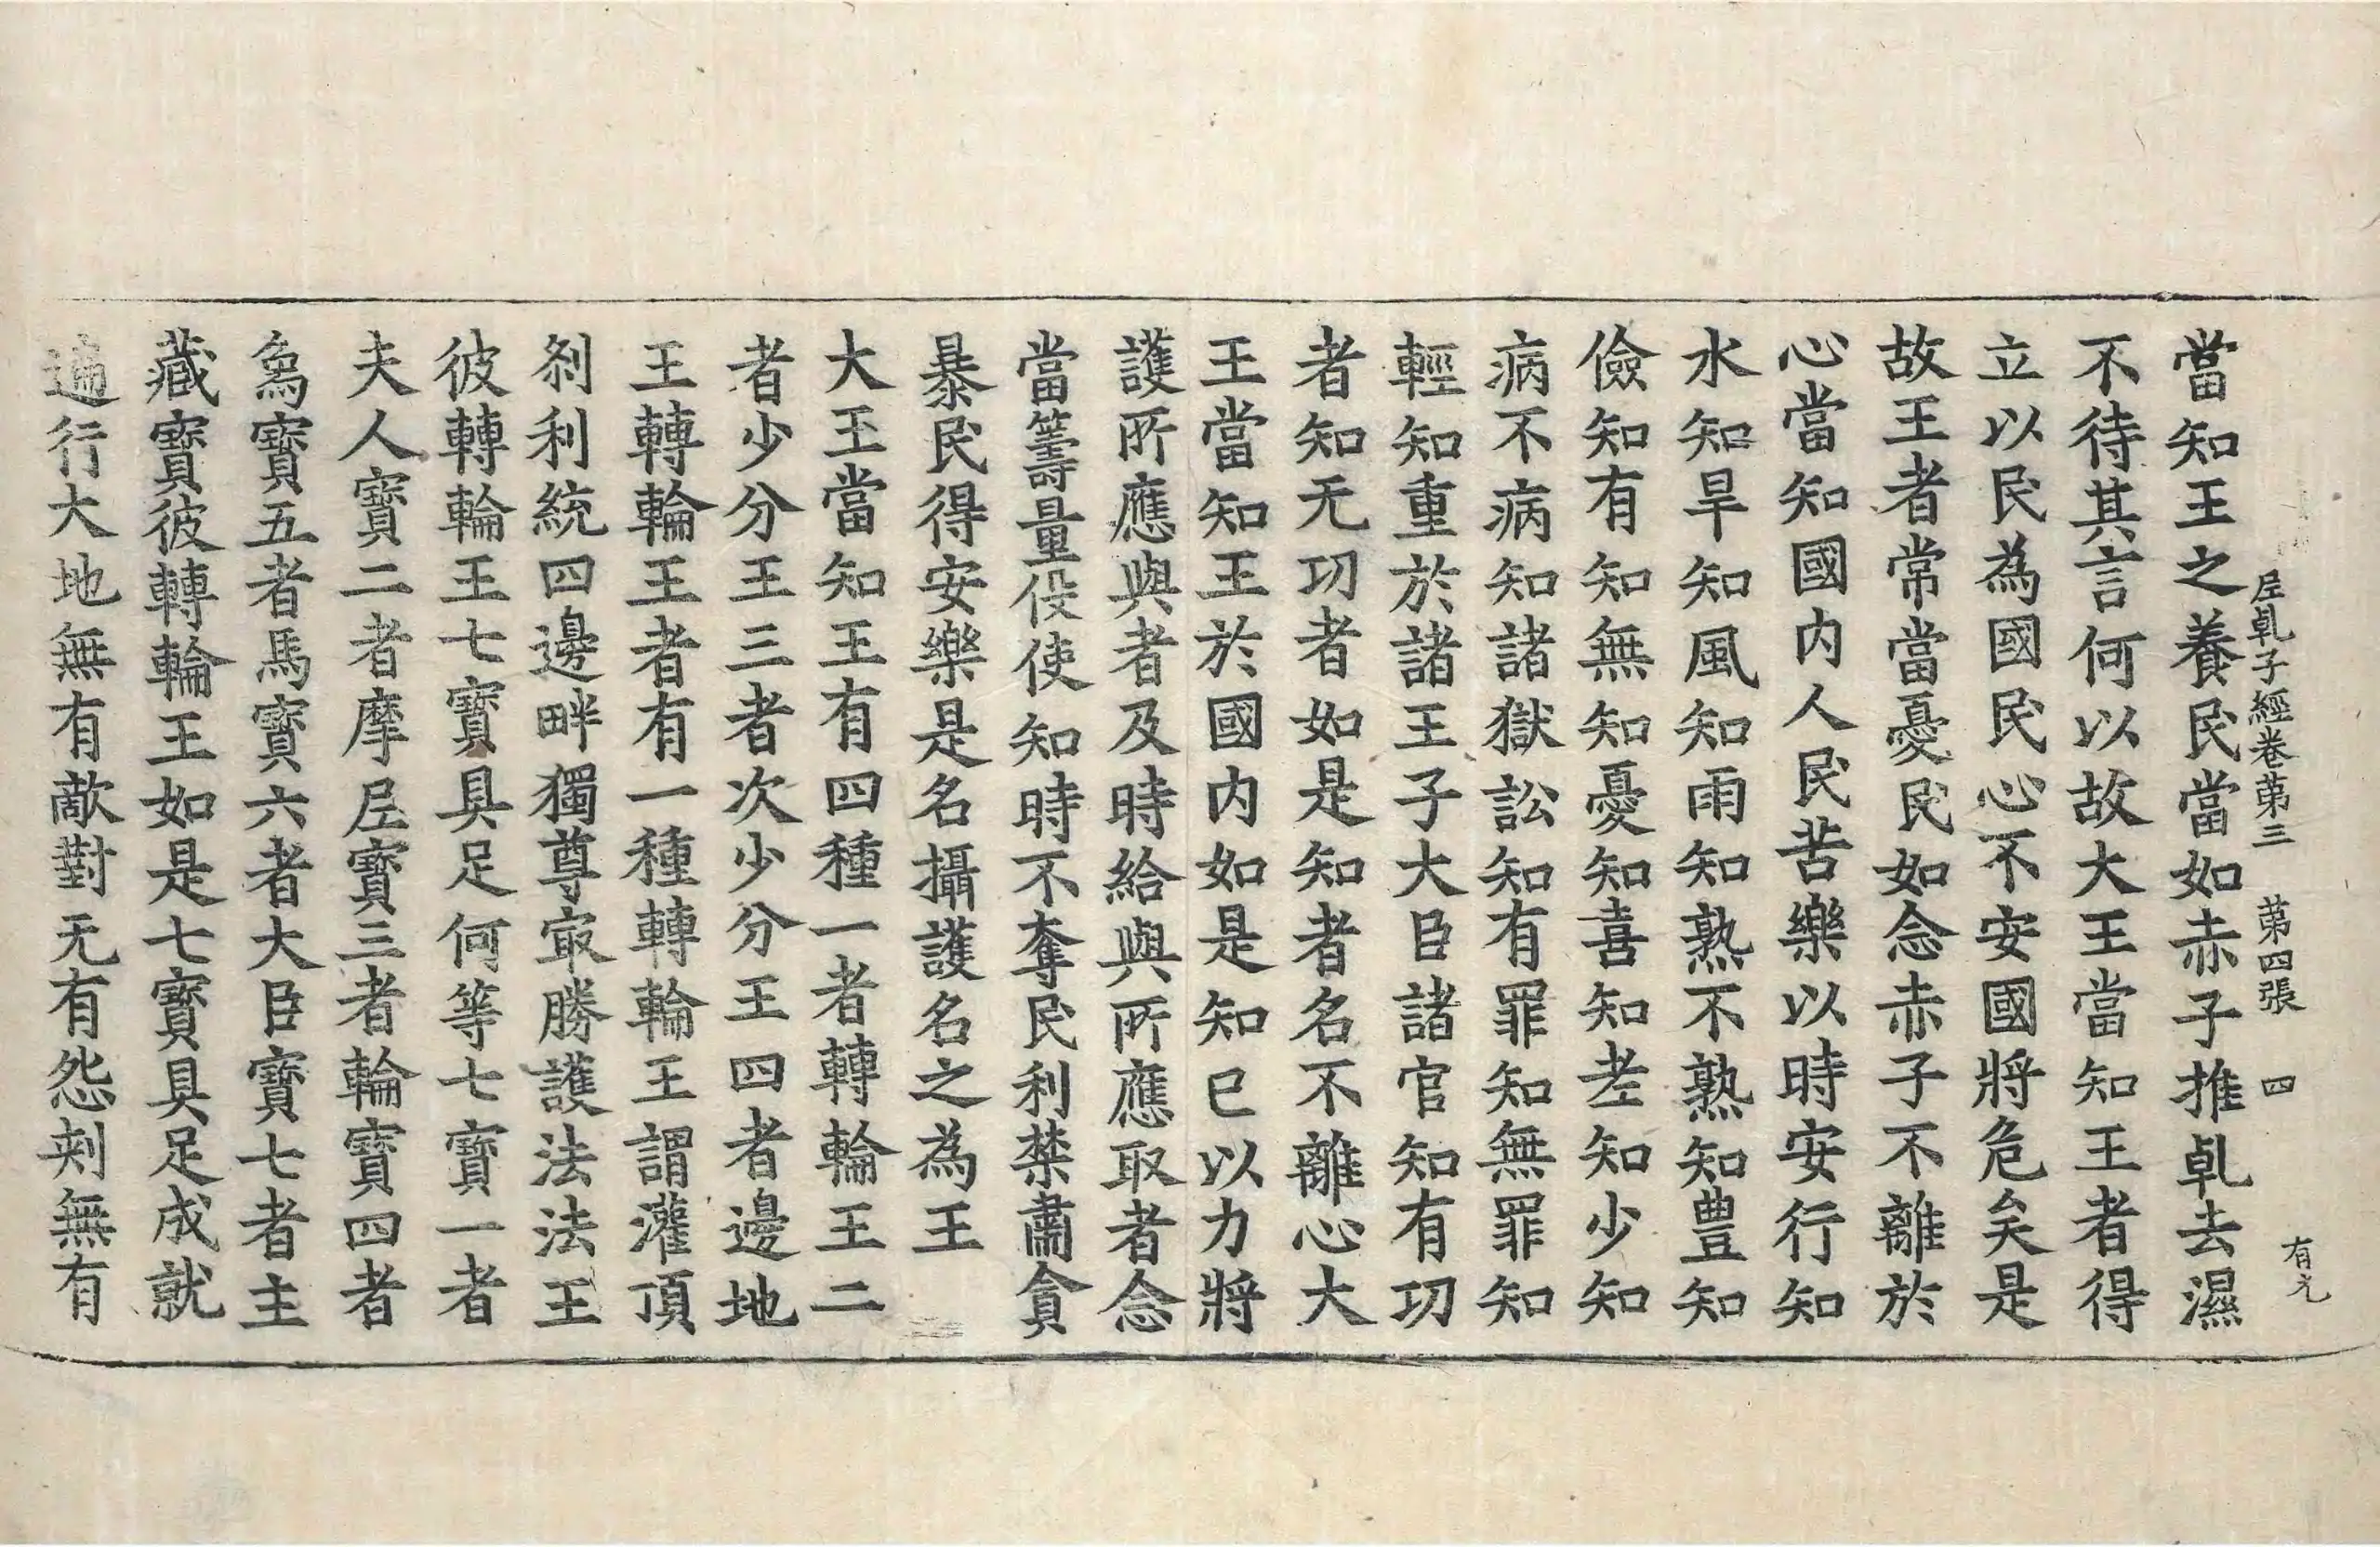 當知王之養民當如赤子推乹去濕
不待其言何以故大王當知王者得
立以民為國民心不安國將危矣是
故王者常當憂民如念赤子不離於
心當知國内人民苦樂以時安行知
水知旱知風知雨知熟不熟知豊知
儉知有知無知憂知喜知老知少知
病不病知諸獄訟知有罪知無罪知
輕知重於諸王子大臣諸官知有功
者知无功者如是知者名不離心大
王當知王於國内如是知已以力將
護所應與者及時給與所應取者念
當籌量役使知時不奪民利禁肅貪
暴民得安樂是名攝護名之為王
大王當知王有四種一者轉輪王二
者少分王三者次少分王四者邊地
王轉輪王者有一種轉輪王謂灌頂
剎利統四邊畔獨尊㝡勝護法法王
彼轉輪王七寶具足何等七寶一者
夫人寶二者摩𡰱寶三者輪寶四者
象寶五者馬寶六者大臣寶七者主
藏寶彼轉輪王如是七寶具足成就
遍行大地無有敵對无有怨刾無有
𡰱乹子經卷苐三　苐四張　四